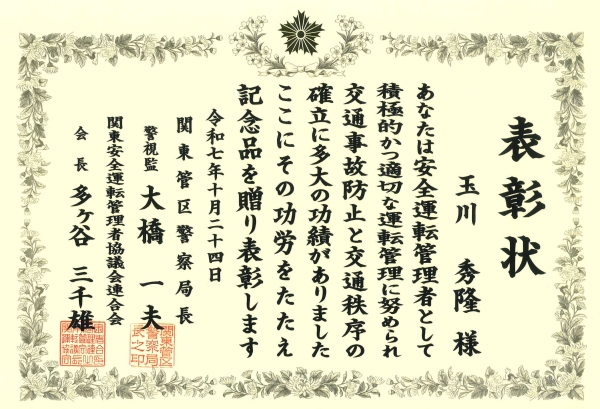 表彰状
玉川 秀隆 様
あなたは安全運転管理者として
積極的かつ適切な運転管理に努められ
交通事故防止と交通秩序の
確立に多大の功績がありました
ここにその功労をたたえ
記念品を贈り表彰します
令和七年十月二十四日
関東管区警察局長
警視監 大橋 一夫
関東安全運転管理者協議会連合会
会長 多ケ谷 三千雄
関東管区
警察局
長之印